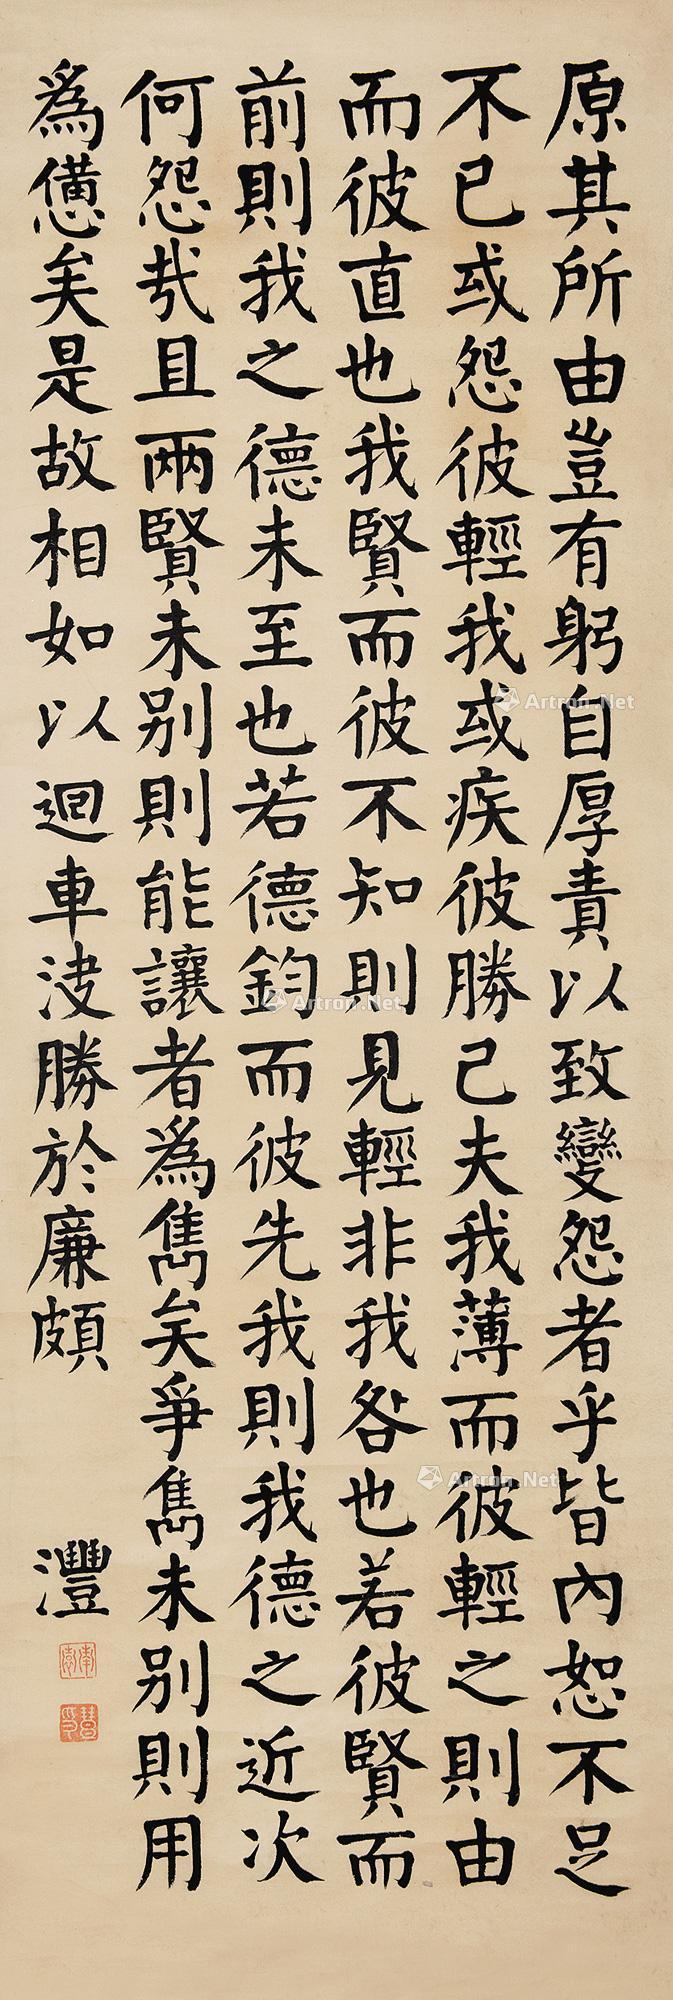 原其所由豈有躬自厚責以致變怨者乎皆內恕不足
不已或怨彼輕我或疾彼勝己夫我薄而彼輕之則由
而彼直也我賢而彼不知則見輕非我咎也若彼賢而
前則我之德未至也若德鈞而彼先我則我德之近次
何怨哉且兩賢未別則能讓者為雋矣爭雋未別則用
為憊矣是故相如以迴車決勝於廉頗
灃
Artron.Net
Artron.Net
Artron.Net